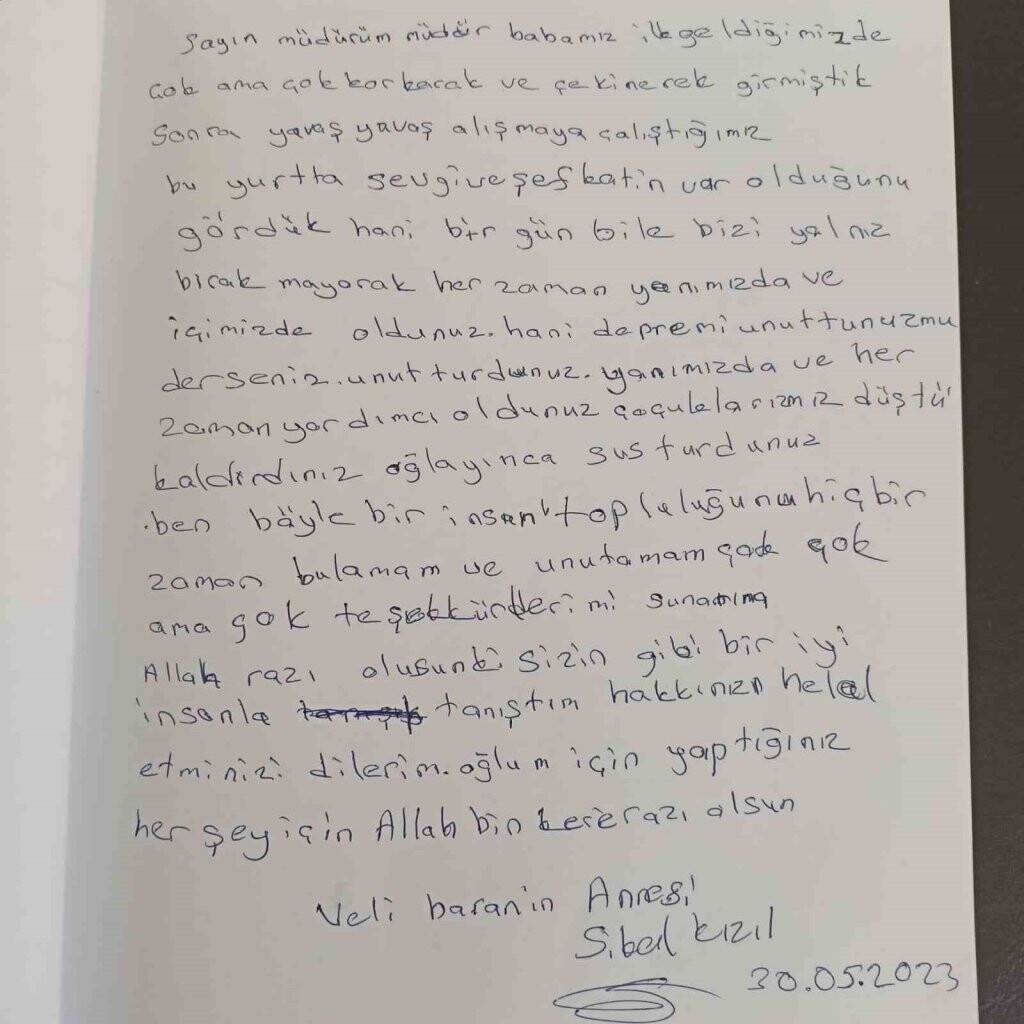 Sayın müdürüm müdür babamız ilk geldiğimizde
çok ama çok korkarak ve çekinerek girmiştik
Sonra yavaş yavaş alışmaya çalıştığımız
bu yurtta sevgi ve şefkatin var olduğunu
gördük hani bir gün bile bizi yalnız
bırakmayarak her zaman yanımızda ve
içimizde oldunuz. hani depremi unuttunuzmu
derseniz. unutturdunuz. yanımızda ve her
zaman yardımcı oldunuz çocuklarımız düştü
kaldırdınız ağlayınca susturdunuz
. ben böyle bir insan topluluğunu hiçbir
zaman bulamam ve unutamam çok çok
ama çok teşekkürlerimi sunarım
Allah razı olsunki sizin gibi bir iyi
insanla tanıştım hakkınızı helal
etminizi dilerim. oğlum için yaptığınız
her şey için Allah bin kere razı olsun
Veli baran'ın Annesi
Sibel Kızıl
30.05.2023